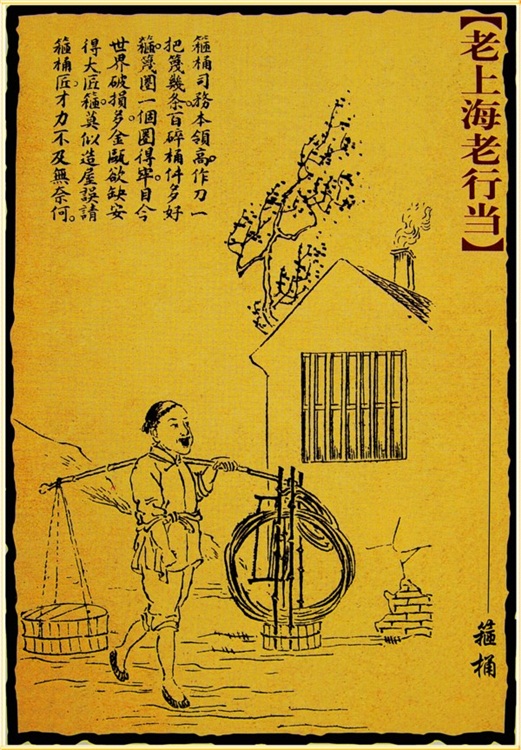 【老上海老行当】
箍桶司務本領高。作刀一
把篾幾条。百碎桶件多好
箍。篾圈一個圈得牢。目今
世界破損多。金甌欲缺安
得大匠箍。莫似造屋誤請
箍桶匠。才力不及無奈何。
箍桶